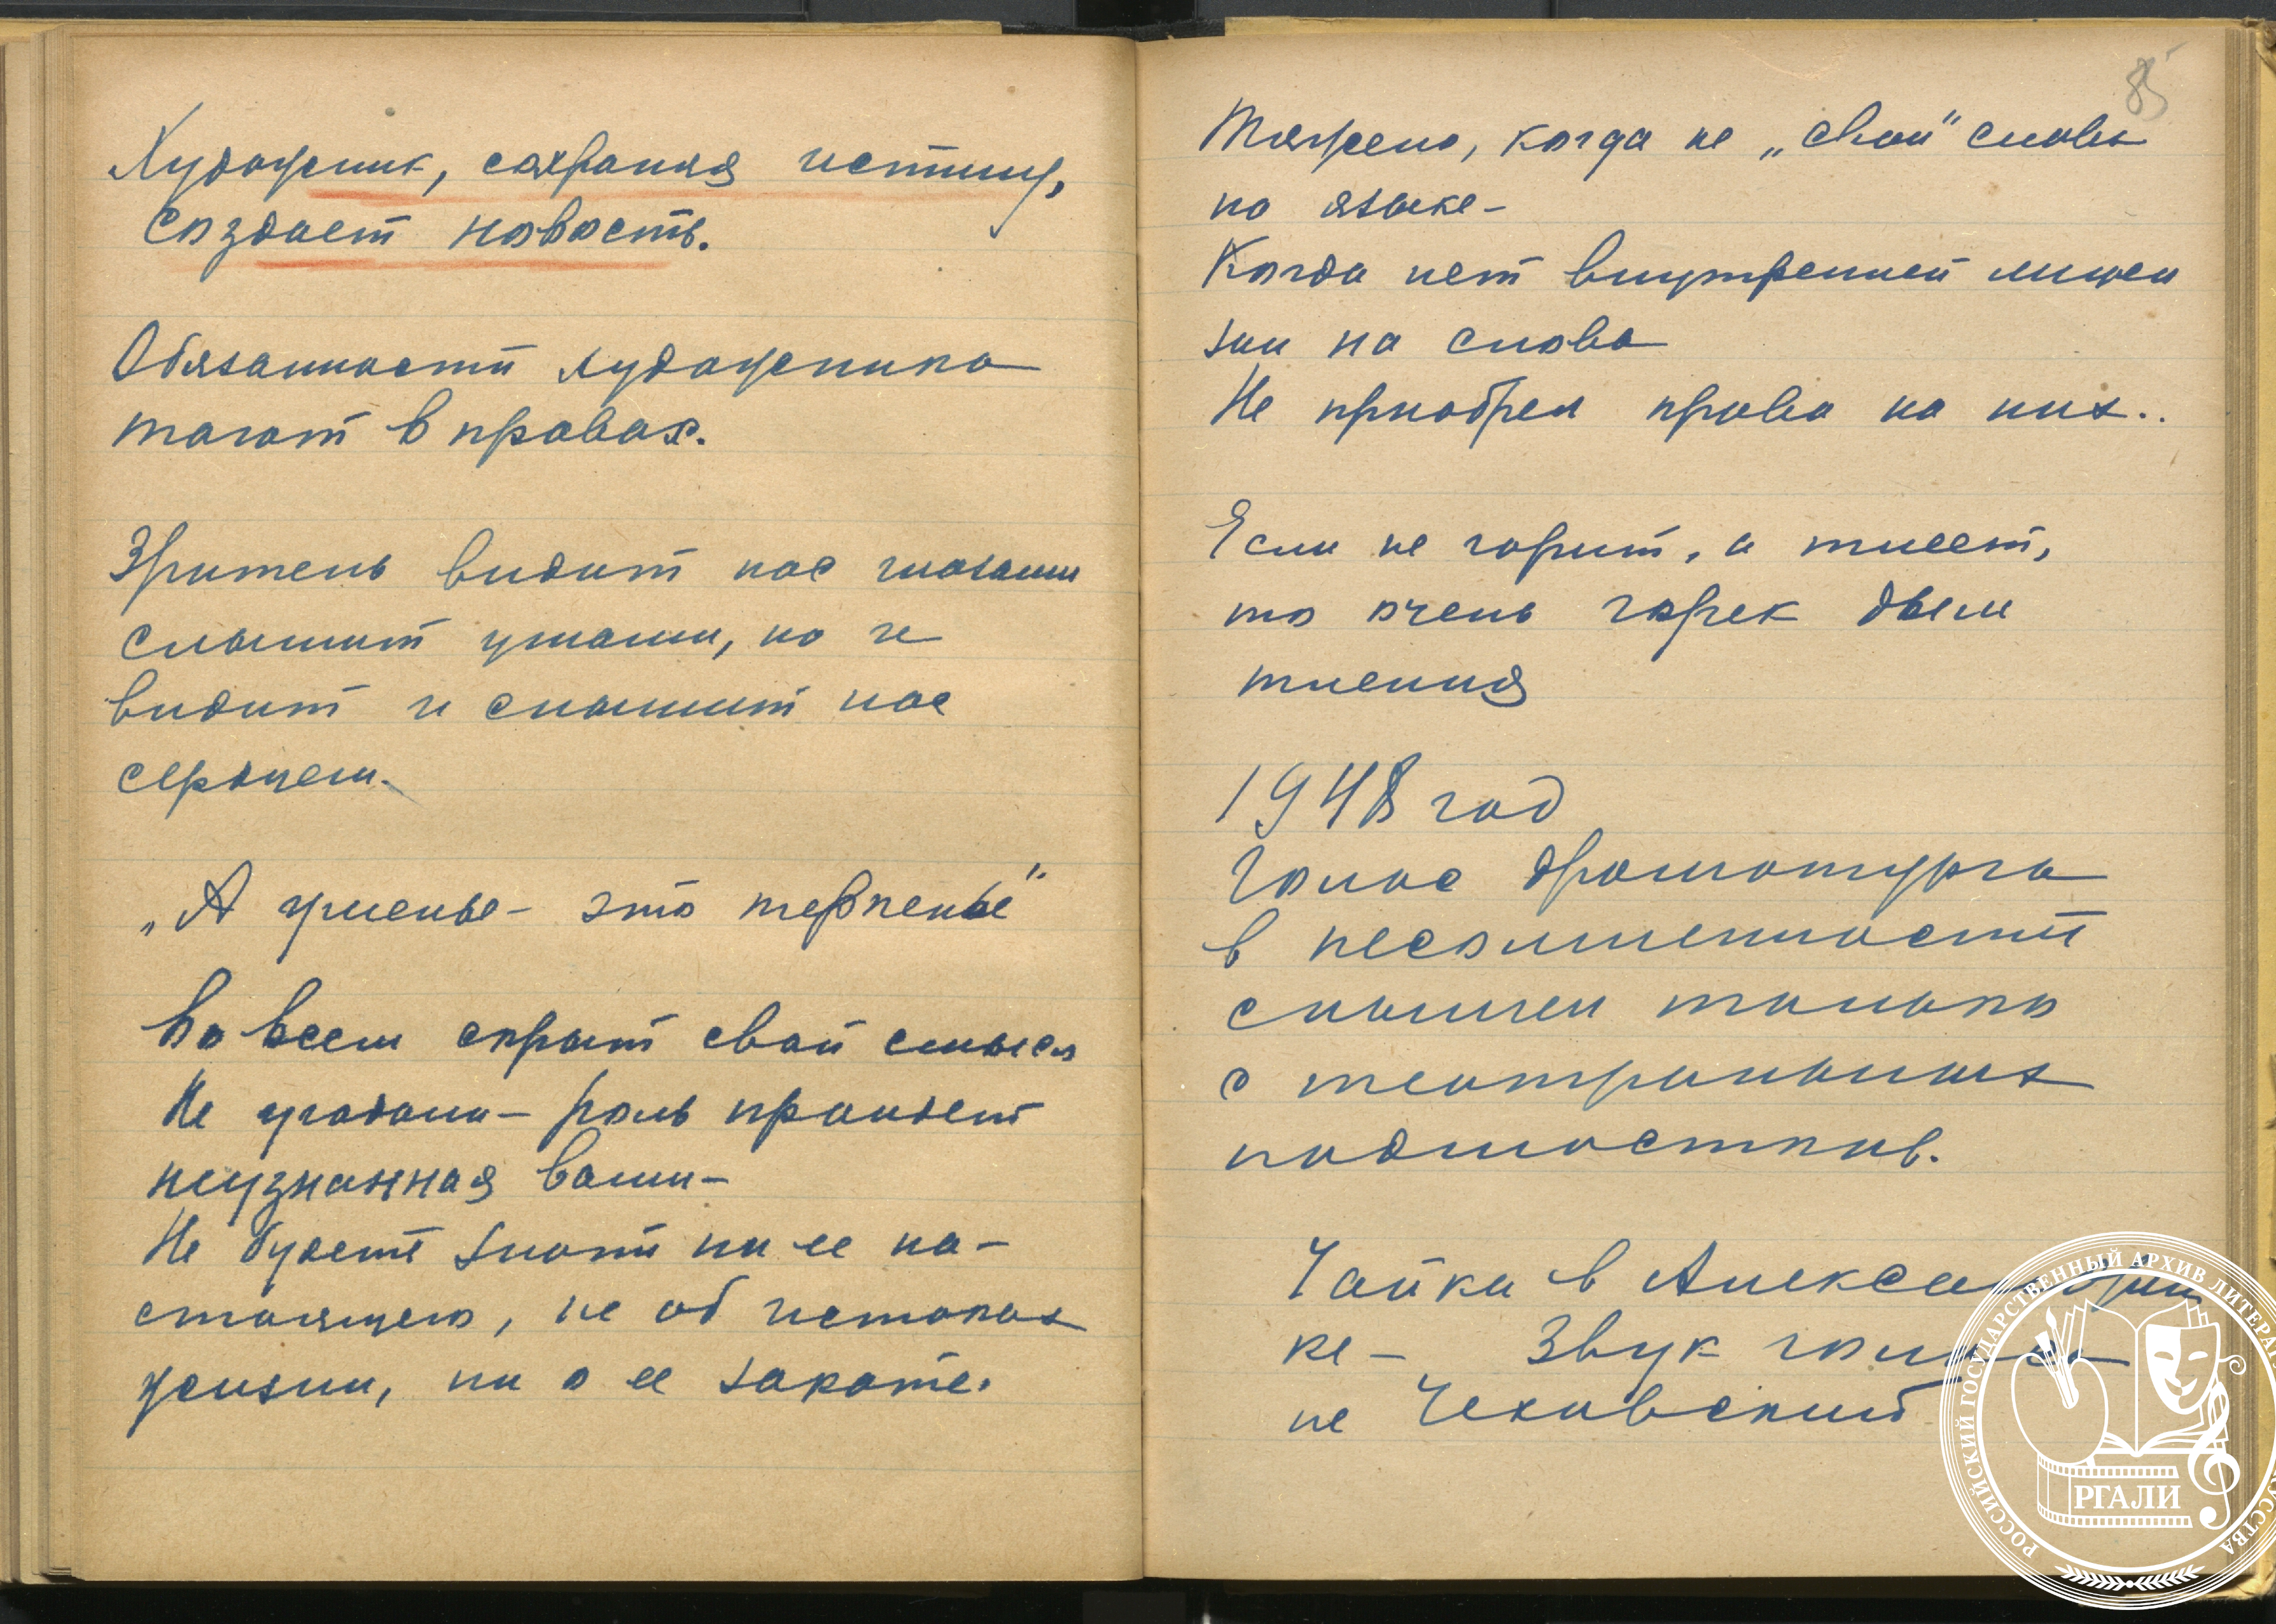 Художник, сохраняя истину,
создает новость.
Обязанности художника
таят в правах.
Зритель видит нас глазами
слышит ушами, но и
видит и слышит нас
сердцем.
„А уменье - это терпенье"
Во всем скрыт свой смысл
Не угадали - роль пройдет
неузнанная вами -
Не будете знать ни ее на-
стоящего, не об истоках
жизни, ни о ее закате.
85
Тяжело, когда не „свои" слова
на языке -
Когда нет внутренней лицен
зии на слова
Не приобрел права на них..
Если не горит, а тлеет,
то очень горек дым
тления
1948 год
Голос драматурга
в несомненности
слышен только
с театральных
подмостков.
Чайка в Александрин
ке - Звук голоса
не Чеховский
РОССИЙСКИЙ ГОСУДАРСТВЕННЫЙ АРХИВ
РГАЛИ